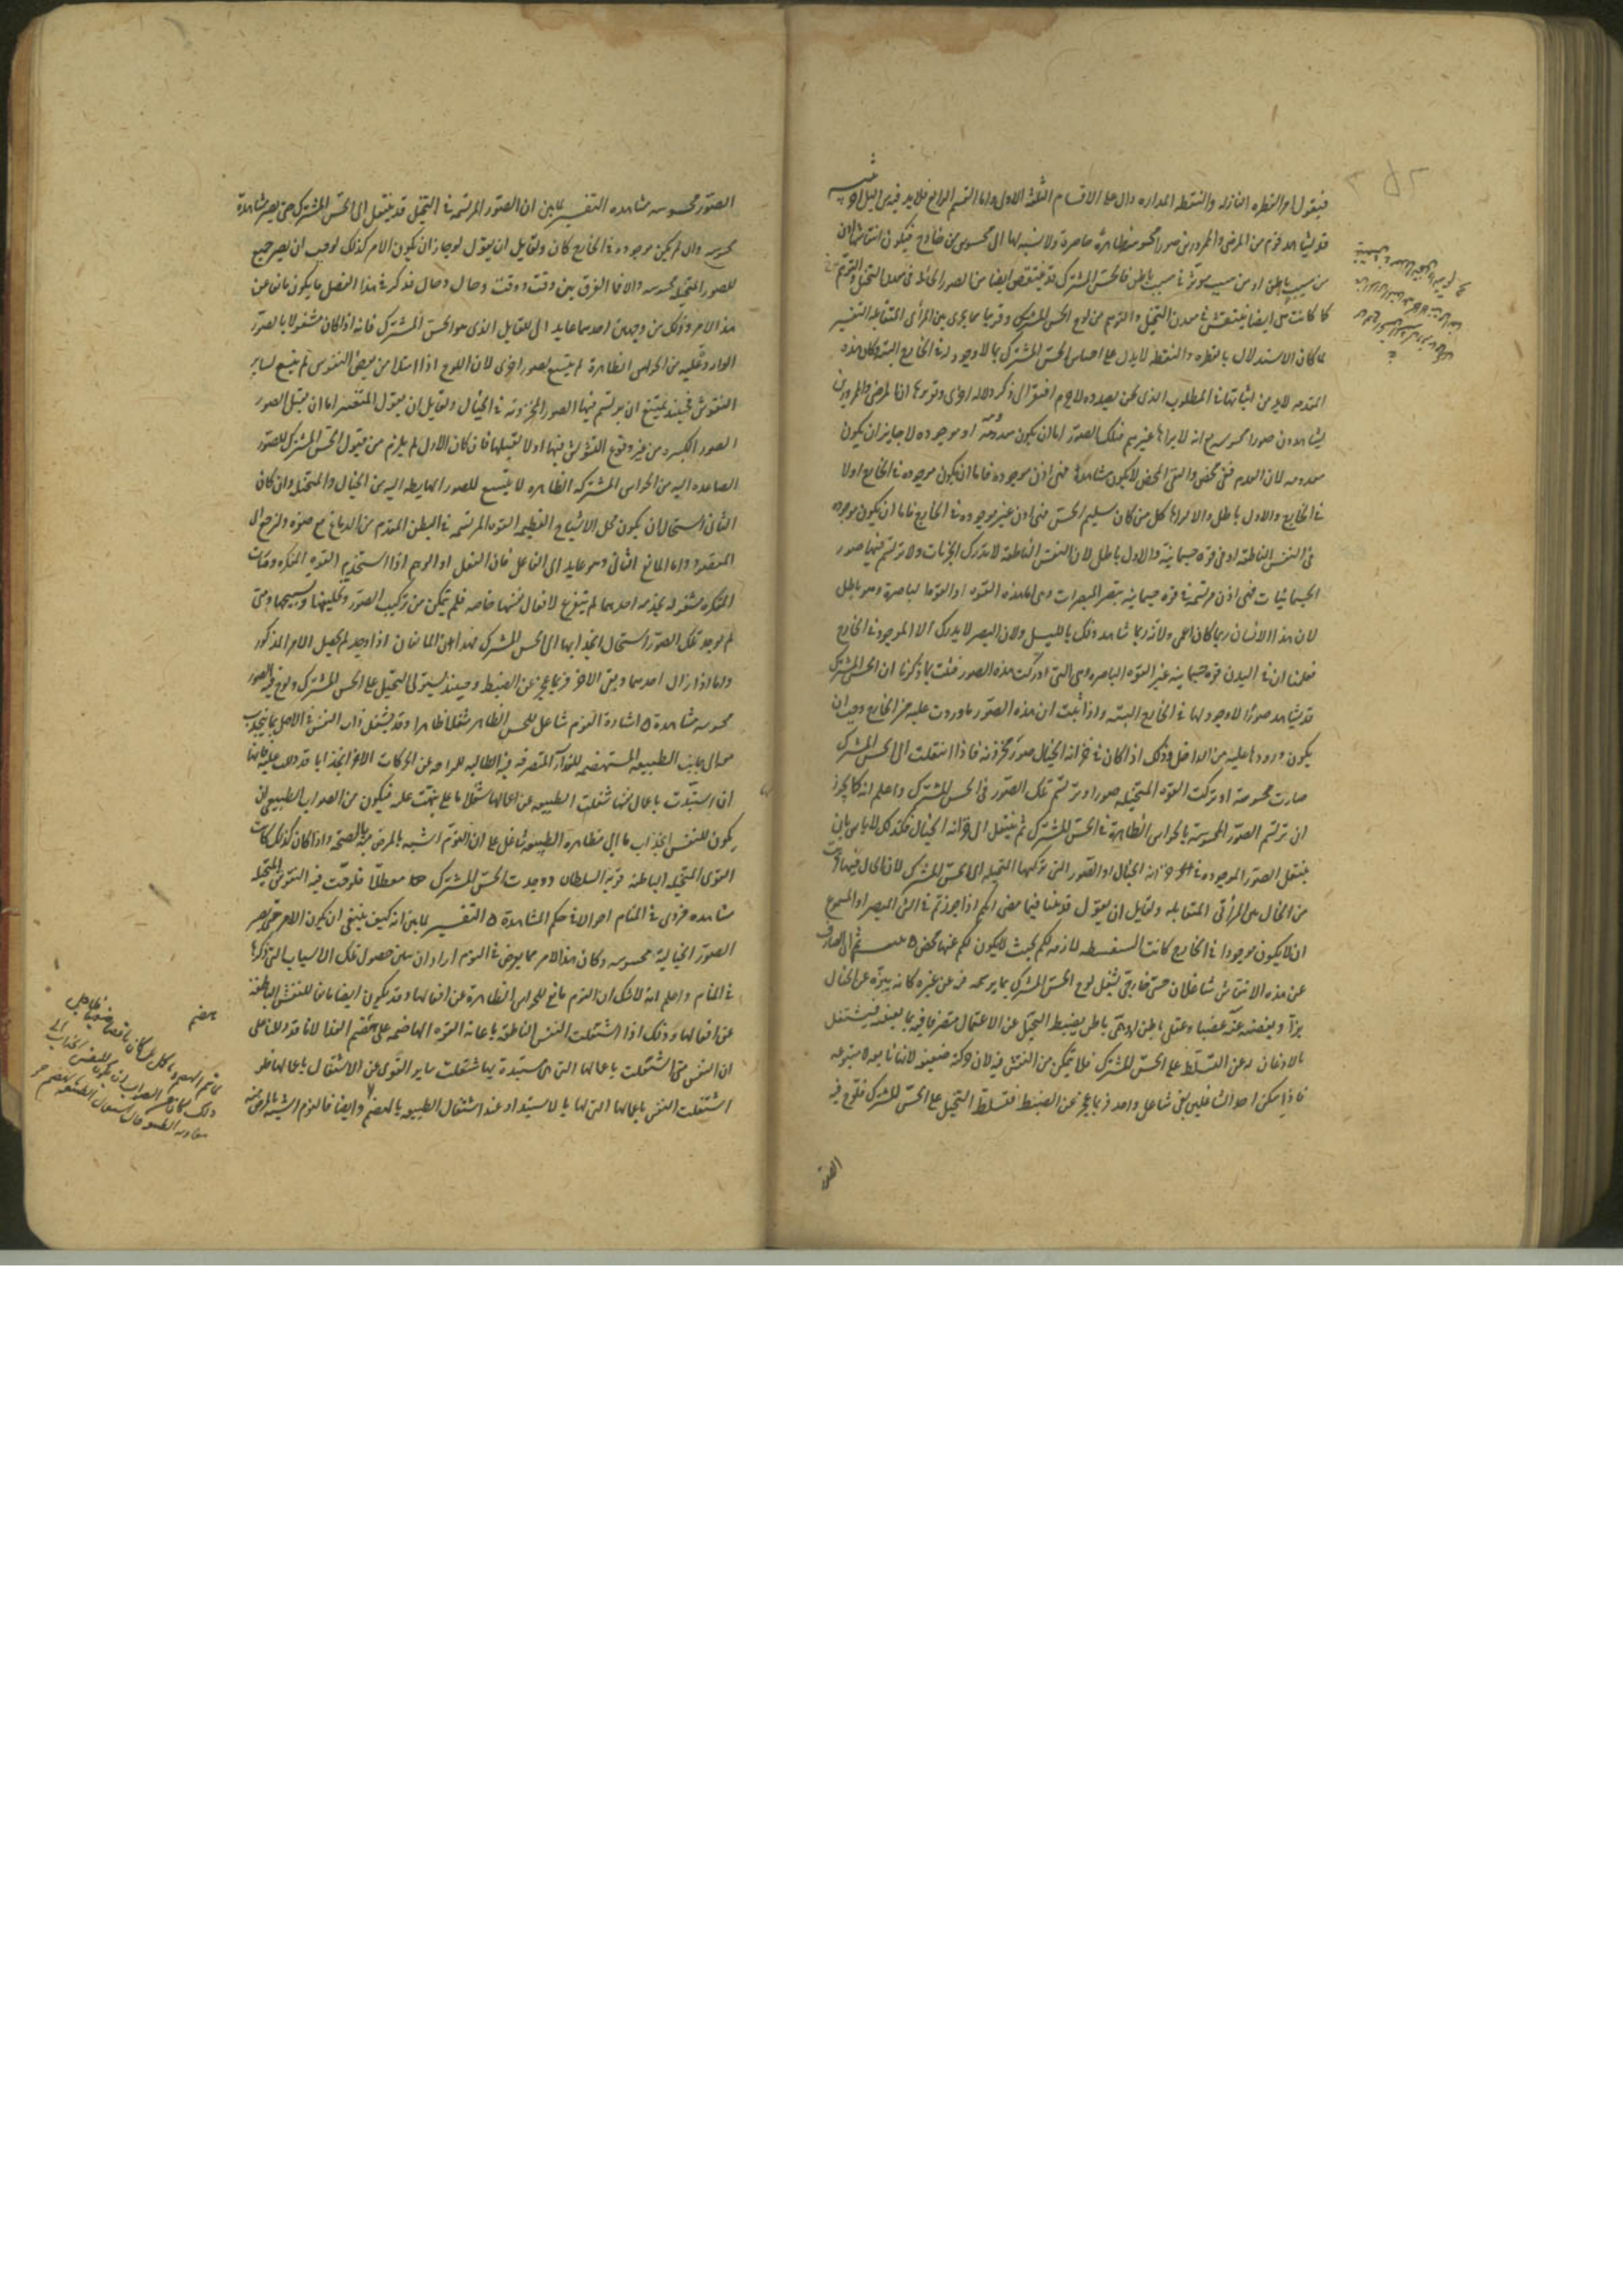 فنقول امر القطرة النازلة والنقطة المدارة دال على الاقسام الثلثة الاول واما القسم الرابع فلابد فيه من دليل
قد يشاهد قوم من المرضى والممرورين صورا محسوسة ظاهرة حاضرة ولا نسبة لها الى محسوس من خارج فيكون انتقاشها اذن
من سبب باطن او من سبب مؤثر في سبب باطن فالحس المشترك قد ينتقش ايضا من الصور الجائلة في معدن التخيل والتوهم
كما كانت هي ايضا ينتقش في معدن التخيل والتوهم من لوح الحس المشترك وقريبا مما يجري بين المرائي المتقابلة التفسير
لما كان الاستدلال بالقطرة والنقطة لا يدل على احساس الحس المشترك بما لا وجود له في الخارج البتة وكان هذه
المقدمة لابد من اثباتها في المطلوب الذي نحن بصدده لا جرم افتقر الى ذكر دلالة اخرى وتقريرها ان المرضى والممرورين
يشاهدون صورا محسوسة مع انه لا يراها غيرهم فتلك الصور اما ان يكون معدومة او موجودة لا جايز ان يكون
معدومة لان العدم نفي محض والنفي المحض لا يكون مشاهدا فهي اذن موجودة فاما ان يكون موجودة في الخارج او لا
في الخارج والاول باطل والا لرآها كل من كان سليم الحس فهي اذن غير موجودة في الخارج فاما ان يكون موجودة
في النفس الناطقة او في قوة جسمانية والاول باطل لان النفس الناطقة لا تدرك الجزئيات ولا ترتسم فيها صور
الجسمانيات فهي اذن مرتسمة في قوة جسمانية
لان هذا الانسان ربما كان اعمى ولانه ربما شاهد ذلك بالليل ولان البصر لا يدرك الا الموجود في الخارج
فعلمنا ان في البدن قوة جسمانية غير القوة الباصرة وهي التي ادركت هذه الصور فثبت بما ذكرنا ان الحس المشترك
قد يشاهد صورا لا وجود لها في الخارج البتة واذا ثبت ان هذه الصور ما وردت عليه من الخارج وجب ان
يكون ورودها عليه من الداخل وذلك اذا كان في خزانة الخيال صور مخزونة فاذا انتقلت الى الحس المشترك
صارت محسوسة او تركب القوة المتخيلة صورا وترتسم تلك الصور في الحس المشترك واعلم انه كما يجوز
ان ترتسم الصور المحسوسة بالحواس الظاهرة في الحس المشترك ثم ينتقل الى خزانة الخيال فكذلك لا باس بان
ينتقل الصور الموجودة في خزانة الخيال او الصور التي تركبها المتخيلة الى الحس المشترك لان الحال فيها
من الحال في المرائي المتقابلة ولقايل ان يقول قد بينا فيما مضى انكم اذا جوزتم في الشيء المبصر او المسموع
ان لا يكون موجودا في الخارج كانت السفسطة لازمة لكم بحيث لا يكون لكم عنها محيص ثم ان الصارف
عن هذه الانتقاش شاغلان حسي خارجي يشغل لوح الحس المشترك بما يرسمه فيه عن غيره كانه يبزه عن الخيال
بزا ويغصبه عنه غصبا وعقلي باطن او وهمي باطن يضبط التخيل عن الاعتمال متصرفا فيه بما يعنيه فيشتغل
بالاذعان له عن التسلط على الحس المشترك فلا يتمكن من النقش فيه لان حركته ضعيفة لانها تابعة لا متبوعة
فاذا سكن احد الشاغلين بقي شاغل واحد فربما عجز عن الضبط فتسلط التخيل على الحس المشترك فلوح فيه
الصور
الصور محسوسة مشاهدة التفسير لما بين ان الصور المرتسمة في التخيل قد ينتقل الى الحس المشترك حتى يصير مشاهدة
محسوسة وان لم يكن موجودة في الخارج كان لقايل ان يقول لو جاز ان يكون الامر كذلك لوجب ان يصير جميع
الصور المتخيلة محسوسة والا فما الفرق بين وقت ووقت وحال وحال فذكر في هذا الفصل ما يكون مانعا عن
هذا الامر وذلك من وجهين احدهما عايد الى القابل الذي هو الحس المشترك فانه اذا كان مشغولا بالصور
الواردة عليه من الحواس الظاهرة لم يتسع لصور اخرى لان اللوح اذا امتلا من بعض النقوش لم يتسع لساير
النقوش فحينئذ يمتنع ان يرتسم فيها الصور المخزونة في الخيال ولقايل ان يقول المتقدم اما ان يقبل الصور
الصور الكبيرة من غير وقوع التشويش فيها او لا يقبلها فان كان الاول لم يلزم من قبول الحس المشترك للصور
الصاعدة اليه من الحواس المشتركة الظاهرة لا يتسع للصور الهابطة اليه من الخيال والمتخيلة وان كان
الثاني استحال ان يكون محل الاشباح العظيمة القوة المرتسمة في البطن المقدم من الدماغ مع صغره
واما المانع الثاني وهو عايد الى الفاعل فان العقل او الوهم اذا استخدم القوة المفكرة وصارت
المفكرة مشغولة بخدمة احدهما لم يتفرغ لافعال نفسها خاصة فلم يتمكن من تركيب الصور وتحليلها
لم توجد تلك الصور استحال انجذابها الى الحس المشترك فهذان هما المانعان اذا وجدا لم يحصل الامر المذكور
واما اذا زال احدهما وبقي الاخر فربما عجز عن الضبط وحينئذ يستولي التخيل على الحس المشترك ويلوح فيه الصور
محسوسة مشاهدة اشارة النوم شاغل للحس الظاهر شغلا ظاهرا وقد يشغل ذات النفس في الاصل بما ينجذب
معه الى جانب الطبيعة المستهضمة للغذاء المتصرفة فيه الطالبة للراحة عن الحركات الاخر انجذابا قد دللت عليه فانها
ان استبدت باعمال نفسها شغلت الطبيعة عن اعمالها شغلا ما على ما نبهت عليه فيكون من الصواب الطبيعي ان
يكون للنفس انجذاب ما الى مظاهرة الطبيعة شاغل على ان النوم اشبه بالمرض منه بالصحة واذا كان كذلك كانت
القوى المتخيلة الباطنة قوية السلطان ووجدت الحس المشترك معطلا فلوحت فيه النقوش المتخيلة
مشاهدة فترى في المنام احوالا في حكم المشاهدة التفسير لما بين انه كيف ينبغي ان يكون الامر حتى يصير
الصور الخيالية محسوسة وكان هذا الامر مما يعرض في النوم اراد ان يبين حصول تلك الاسباب التي ذكرها
في المنام واعلم انه لا شك ان النوم مانع للحواس الظاهرة عن افعالها وقد يكون ايضا مانعا للنفس الناطقة
عن افعالها وذلك اذا اشتغلت النفس الناطقة باعانة القوة الهاضمة على هضم الغذا لانا قد دللنا على
ان النفس متى اشتغلت باعمالها التي هي مستبدة بها شغلت ساير القوى عن الاشتغال باعمالها فلو
اشتغلت النفس باعمالها التي لها بالاستبداد عند اشتغال الطبيعة بالهضم وايضا فالنوم اشبه بالمرض منه